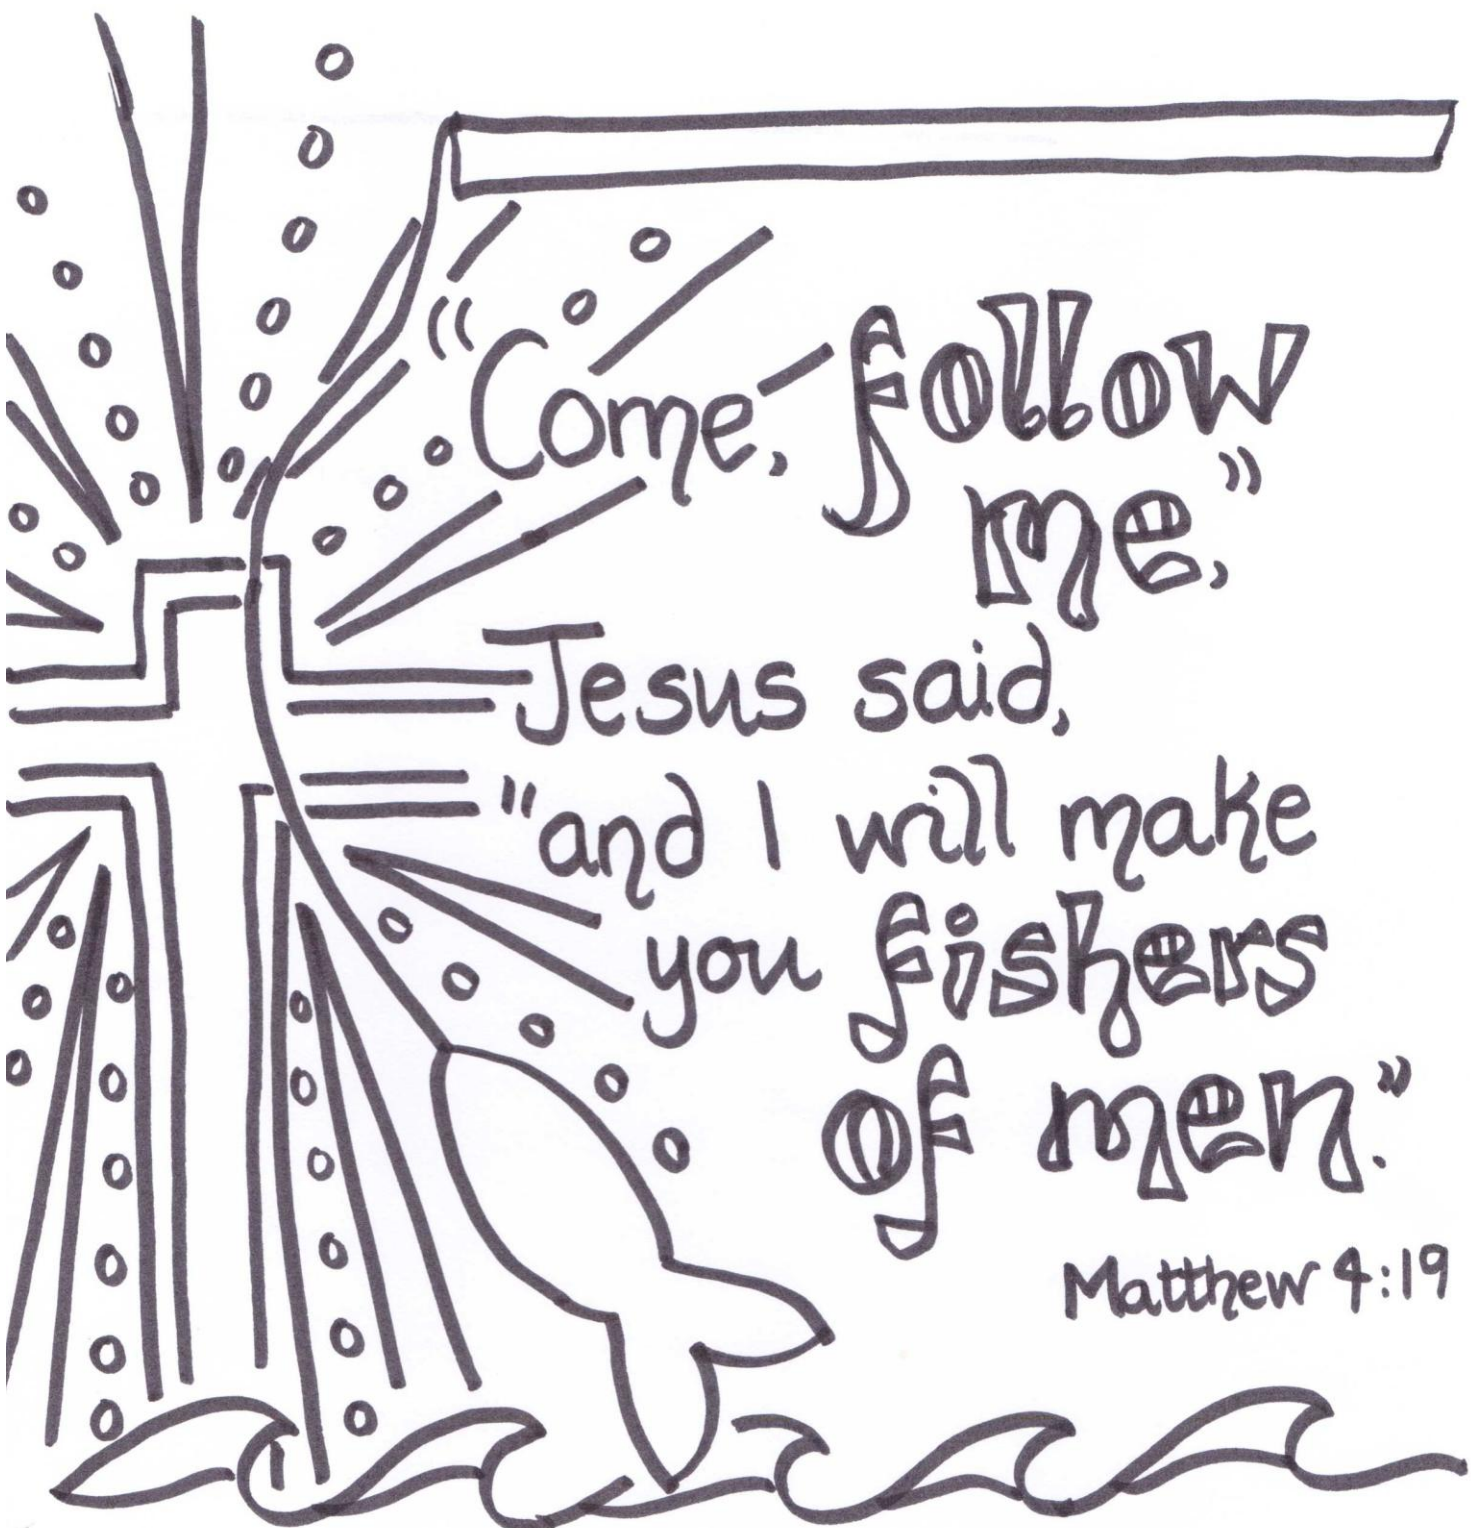 “Come, follow
me,”
Jesus said,
"and I will make
you fishers
of men.”
Matthew 4:19